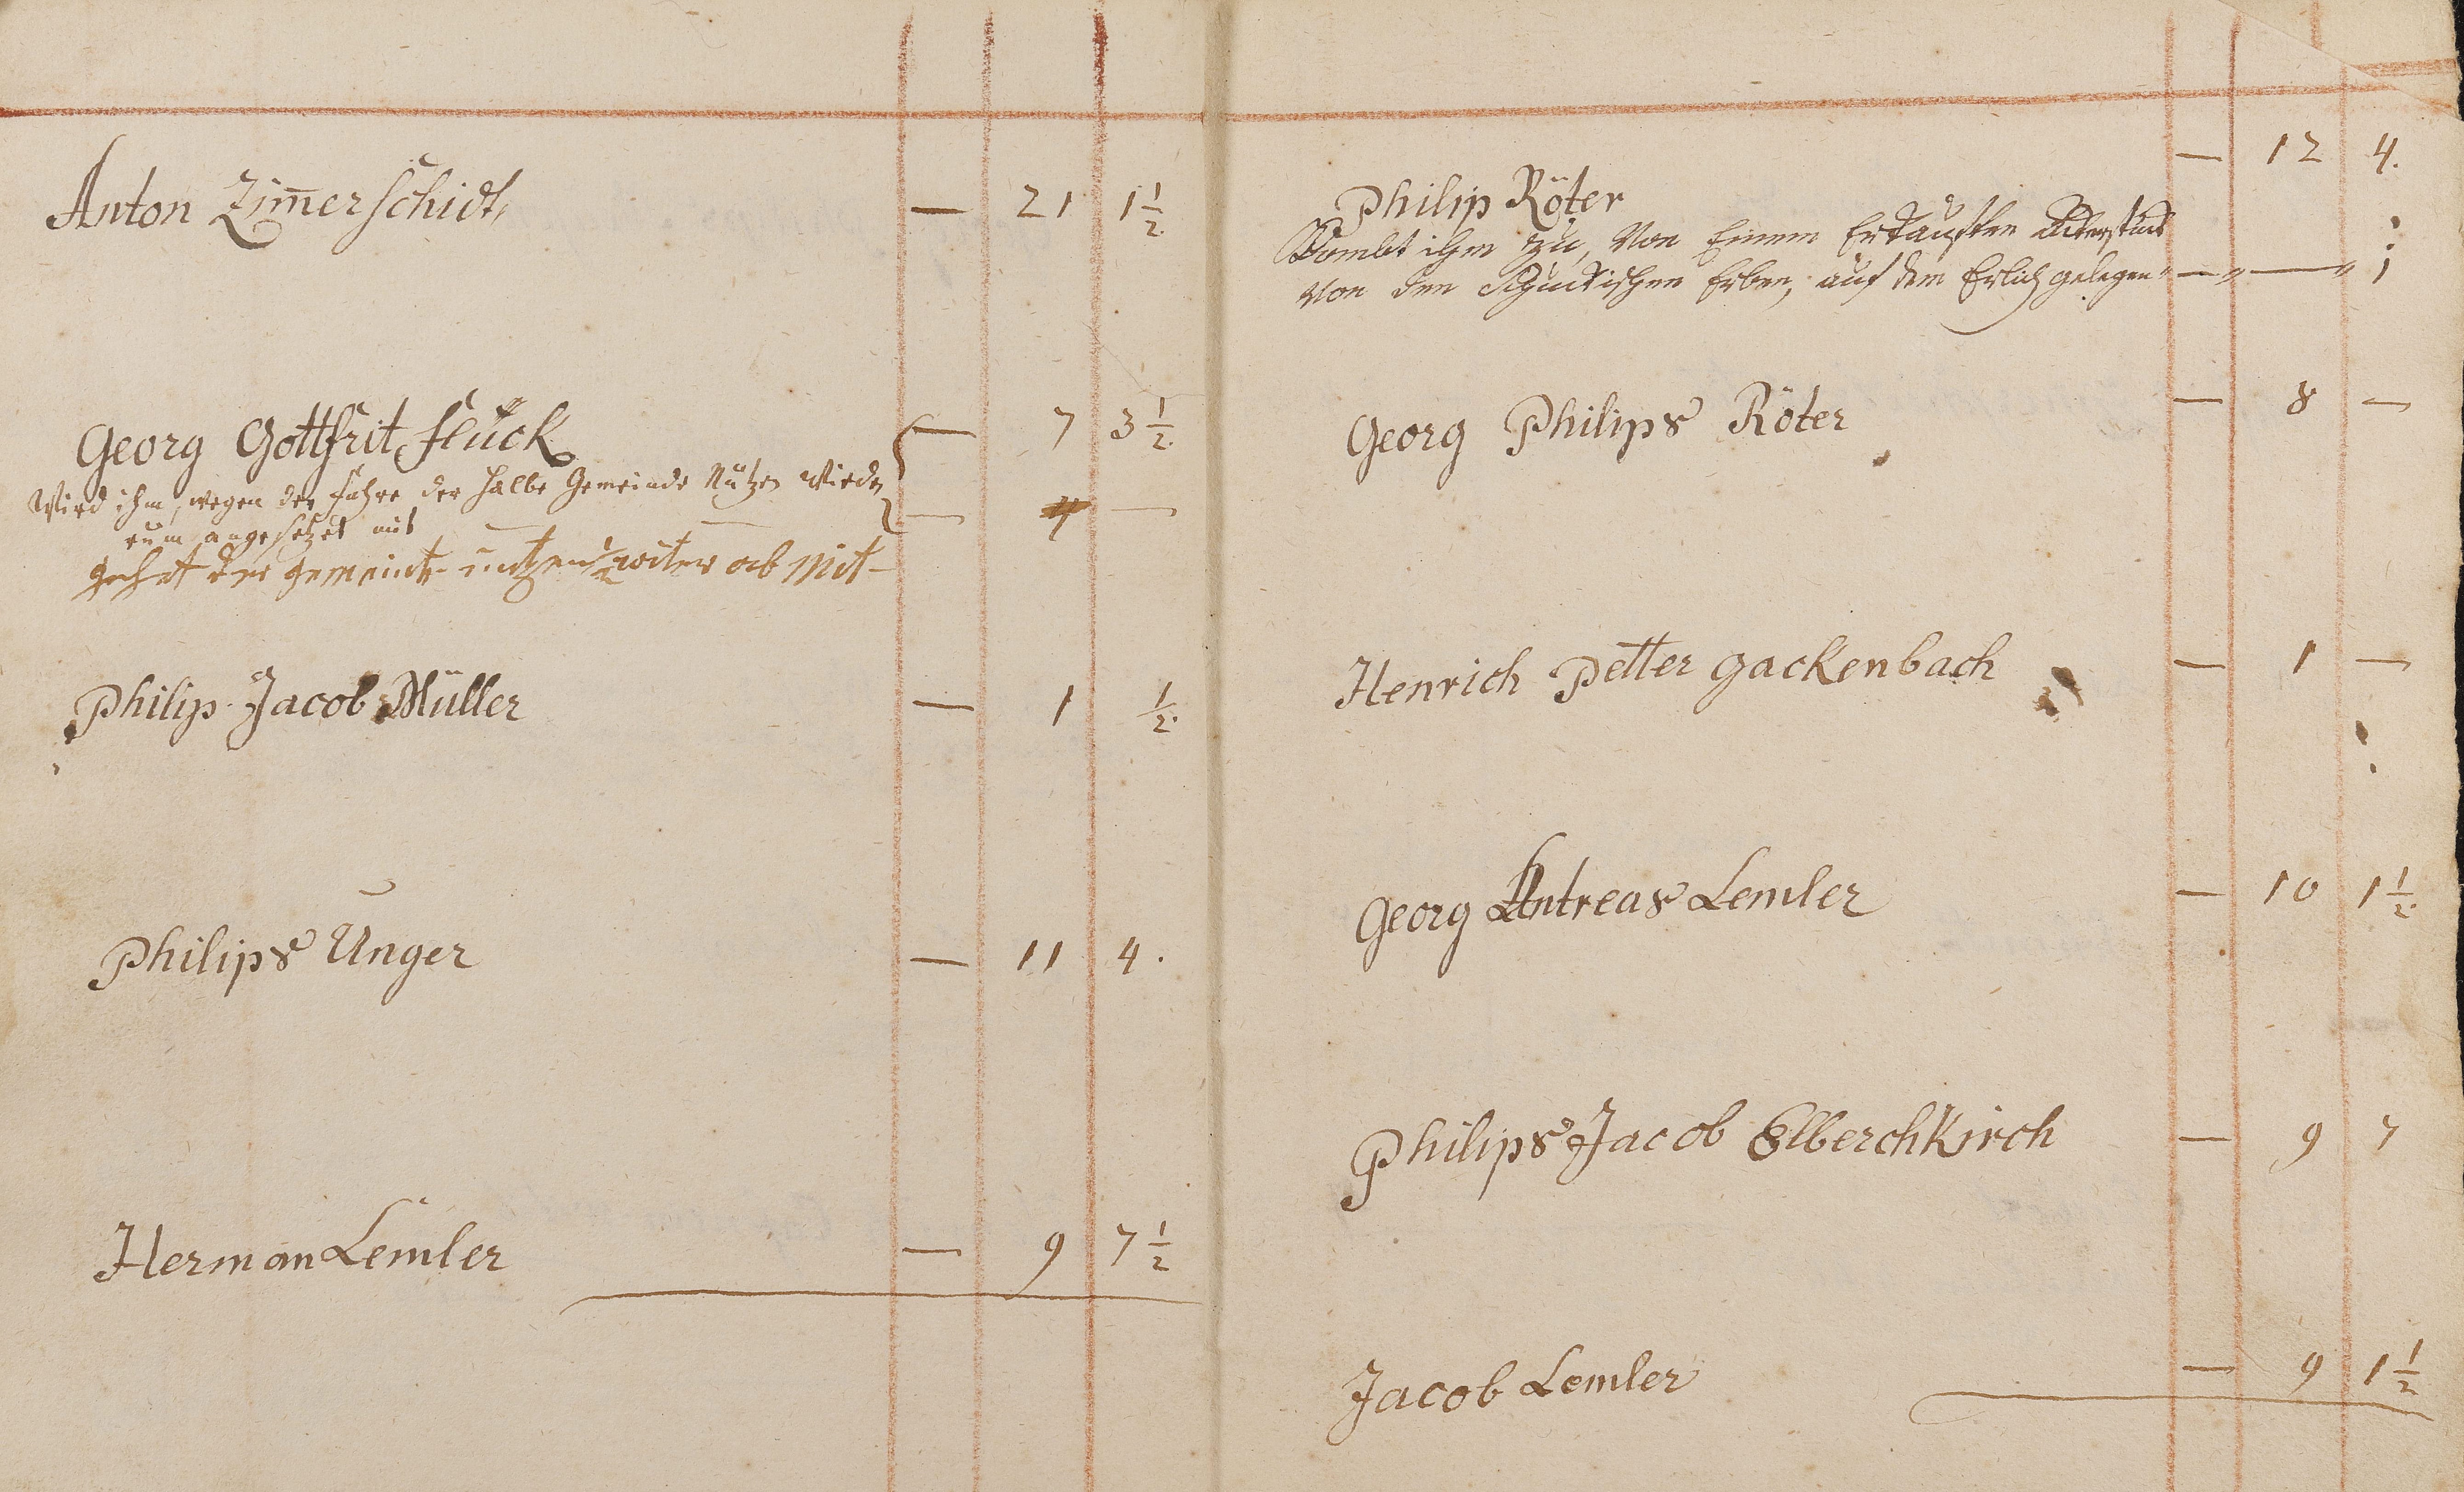 Anton Zim̄erschidt, — 21 1 1/2.
Georg Gottfrit flück — 7 3 1/2.
Wird ihm, wegen der fahre der halbe Gemeinde Nutzen wiede
rum angesetzet mit — 4 —
gehet der gemeint nutzen 1/2 witer ab Mit —
Philip Jacob Müller — 1 1/2.
Philips Unger — 11 4.
Herman Lemler — 9 7 1/2
Philip Röter — 12 4.
Kombt ihm zu, Von Einem Erkauften Ackerstück
Von den Erben, auf dem Erlich gelegen — — 1
Georg Philips Röter — 8 —
Henrich Petter gackenbach — 1 —
Georg Antreas Lemler — 10 1 1/2.
Philips Jacob Elberchkirch — 9 7
Jacob Lemler — 9 1 1/2